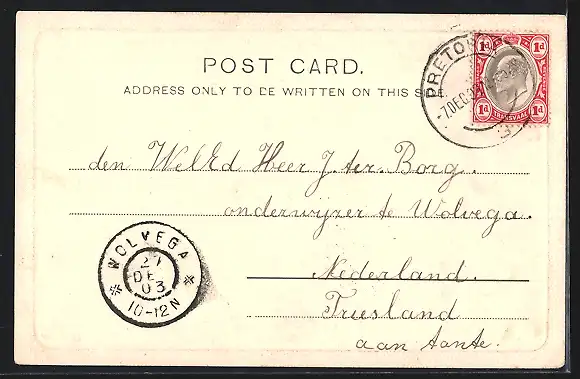 POST CARD.
ADDRESS ONLY TO BE WRITTEN ON THIS SIDE.
PRETORIA
7 DEC
1d 1d
1d TRANSVAAL 1d
den WelEd Heer J. ter. Borg.
onderwijzer te Wolvega.
Nederland.
Friesland
aan tante.
WOLVEGA
27
DE
03
10-12N